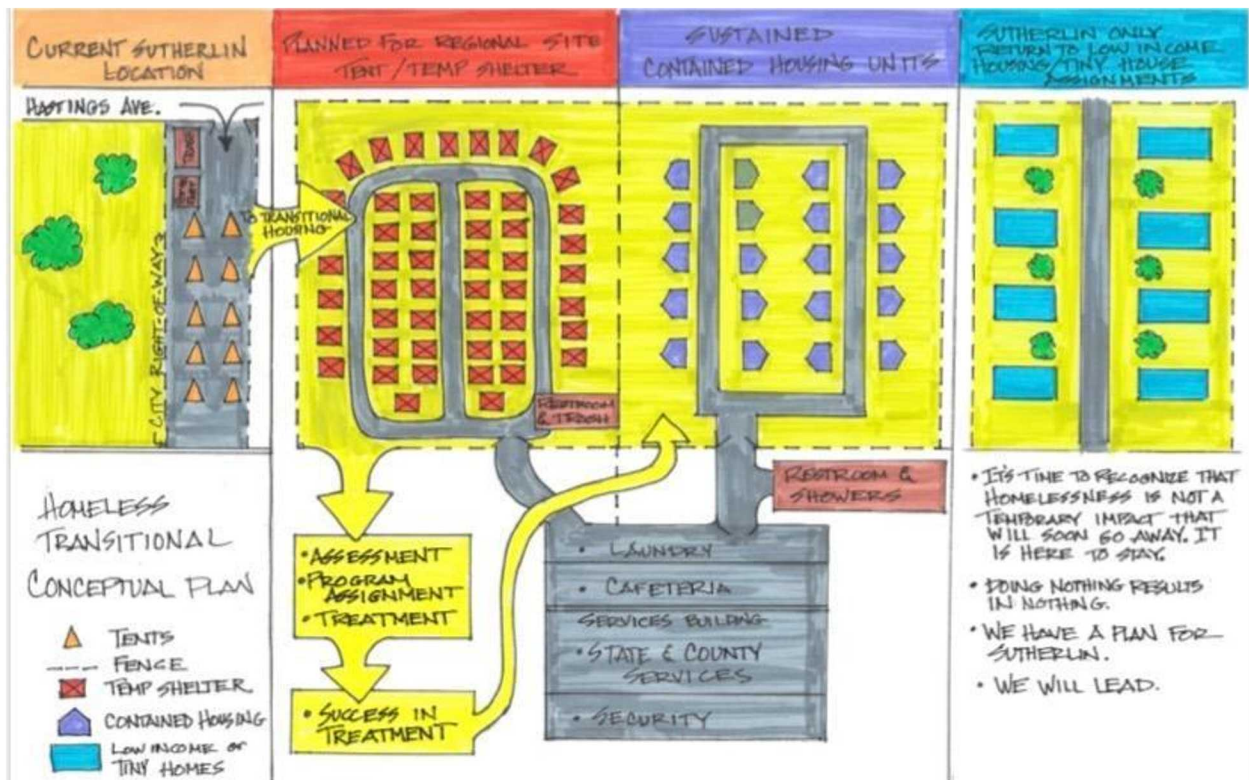 CURRENT SUTHERLIN
LOCATION
PLANNED FOR REGIONAL SITE
TENT/TEMP SHELTER
SUSTAINED
CONTAINED HOUSING UNITS
SUTHERLIN ONLY
RETURN TO LOW INCOME
HOUSING/TINY HOUSE
ASSIGNMENTS
HASTINGS AVE.
TRASH
CITY RIGHT-OF-WAY
TO TRANSITIONAL
HOUSING
RESTROOM
& TRASH
RESTROOM &
SHOWERS
HOMELESS
TRANSITIONAL
CONCEPTUAL PLAN
TENTS
FENCE
TEMP SHELTER
CONTAINED HOUSING
LOW INCOME or
TINY HOMES
• ASSESSMENT
• PROGRAM
ASSIGNMENT
• TREATMENT
• SUCCESS IN
TREATMENT
• LAUNDRY
• CAFETERIA
SERVICES BUILDING
• STATE & COUNTY
SERVICES
• SECURITY
• IT'S TIME TO RECOGNIZE THAT
HOMELESSNESS IS NOT A
TEMPORARY IMPACT THAT
WILL SOON GO AWAY. IT
IS HERE TO STAY.
• DOING NOTHING RESULTS
IN NOTHING.
• WE HAVE A PLAN FOR
SUTHERLIN.
• WE WILL LEAD.